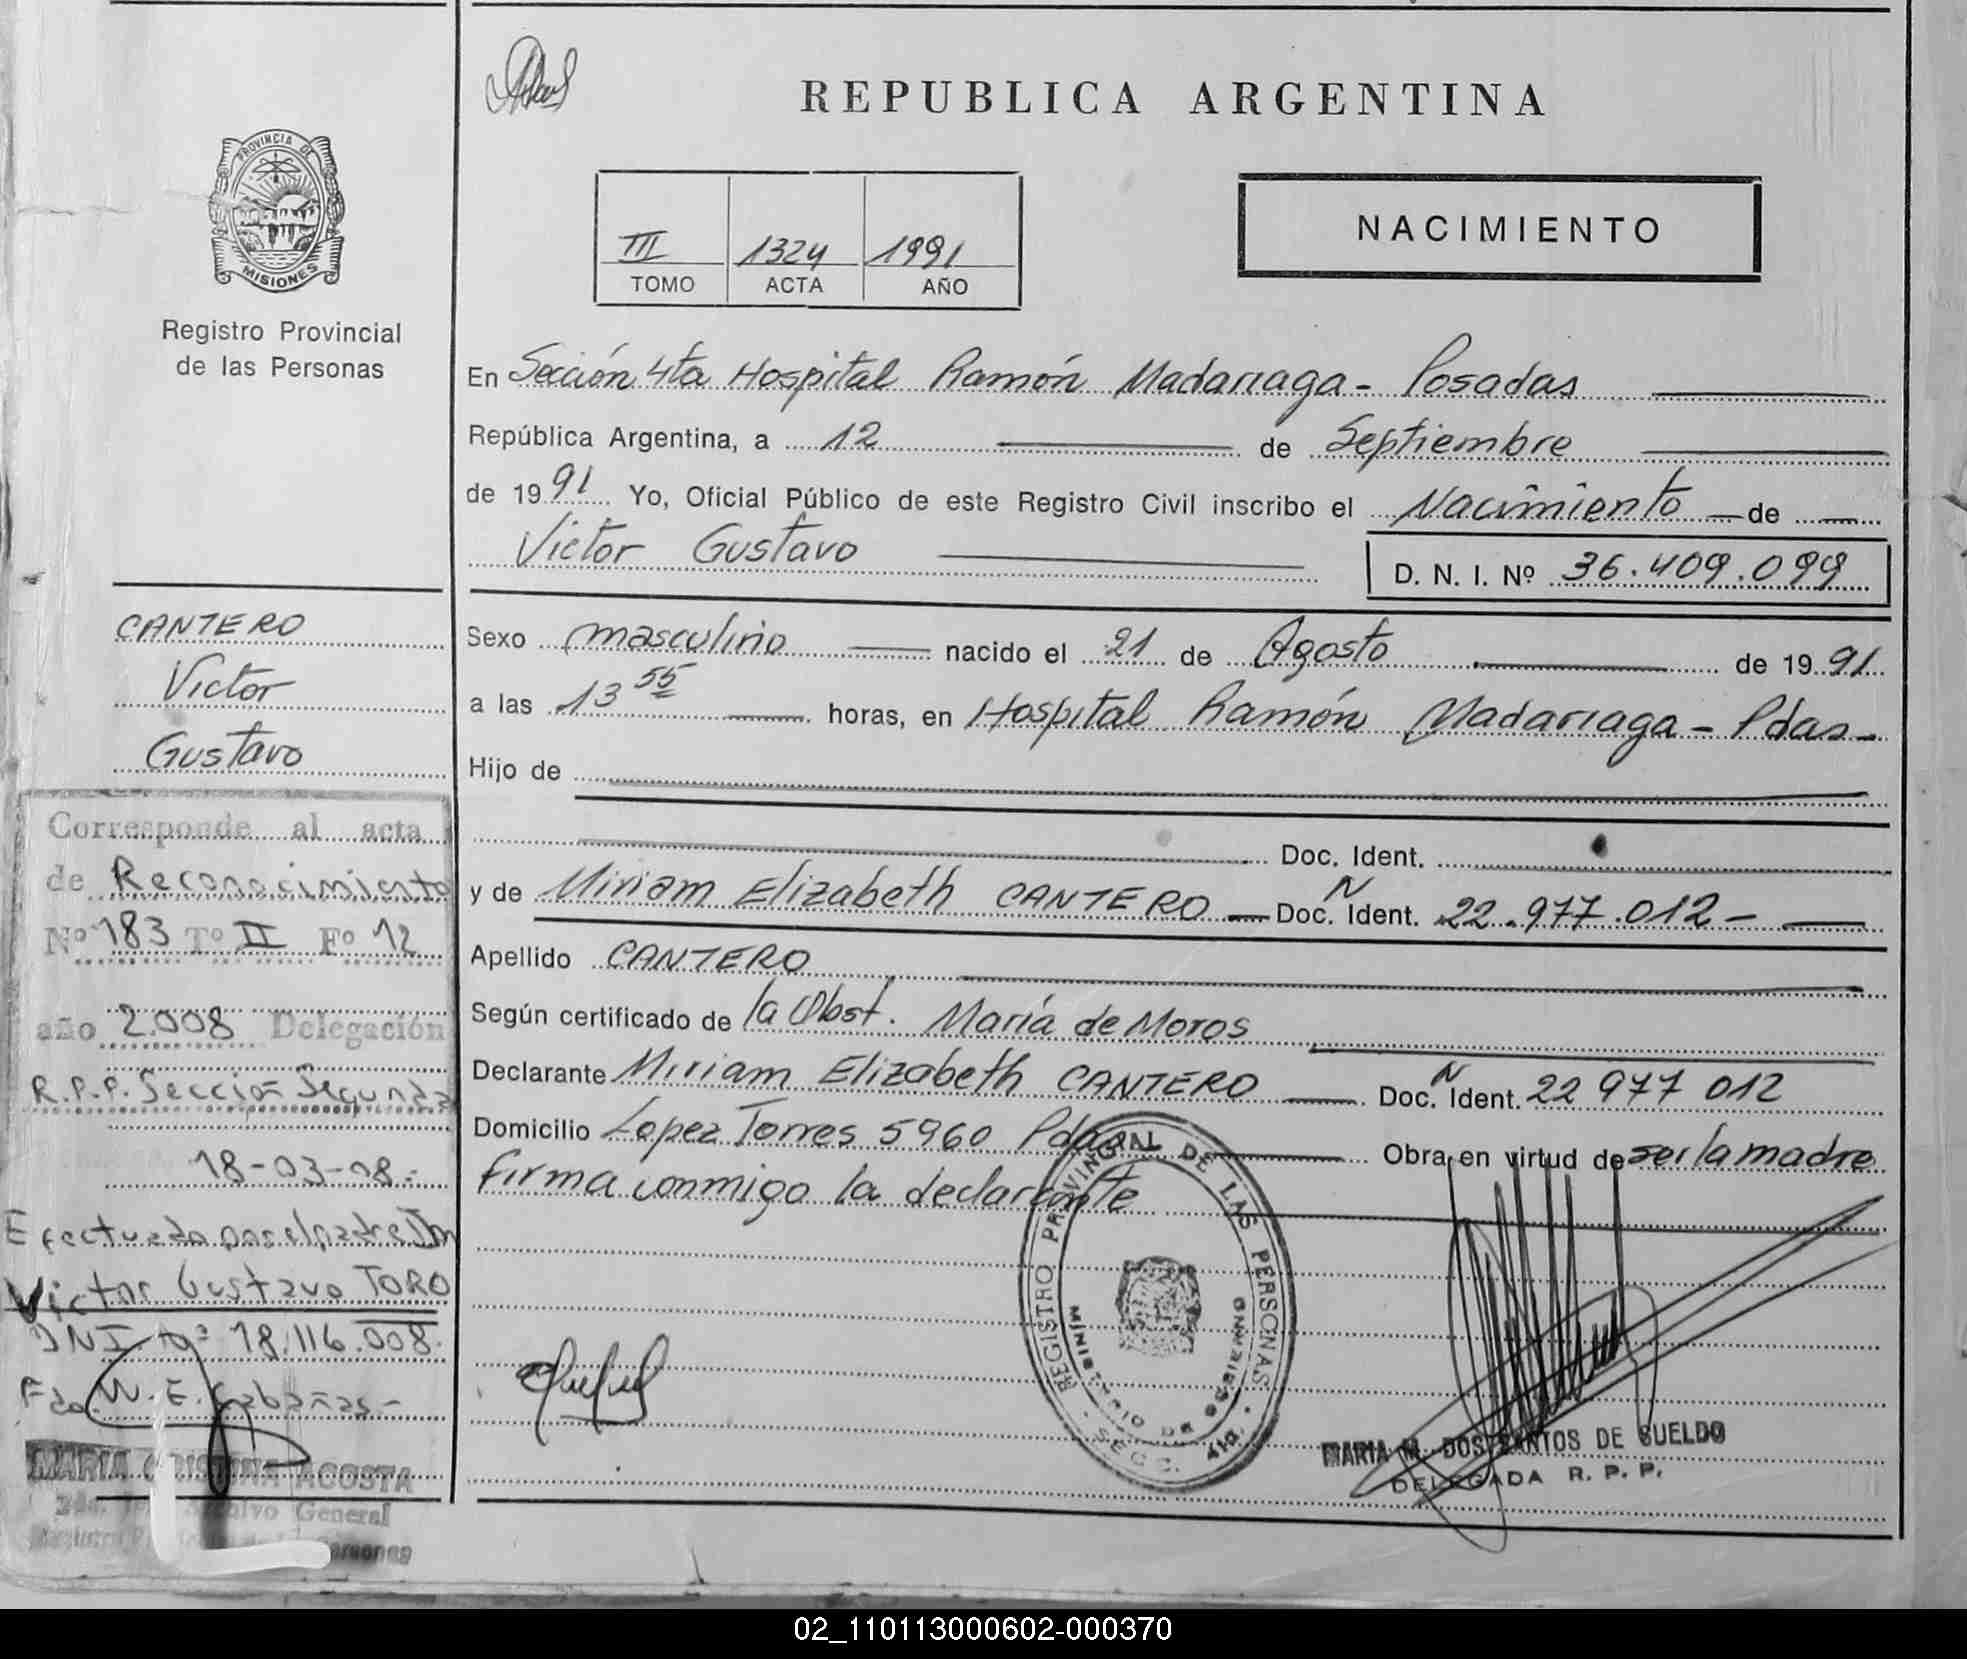 REPUBLICA ARGENTINA
PROVINCIA DE
MISIONES
Registro Provincial
de las Personas
III 1324 1991
TOMO ACTA AÑO
NACIMIENTO
En Sección 4ta Hospital Ramón Madariaga - Posadas
República Argentina, a 12 de Septiembre
de 1991 Yo, Oficial Público de este Registro Civil inscribo el Nacimiento de
Victor Gustavo
D. N. I. Nº 36.409.099
Sexo masculino nacido el 21 de Agosto de 1991
a las 13 55 horas, en Hospital Ramón Madariaga - Pdas -
Hijo de
Doc. Ident.
y de Miriam Elizabeth CANTERO Doc. N Ident. 22.977.012 -
Apellido CANTERO
Según certificado de la Obst. María de Moros
Declarante Miriam Elizabeth CANTERO Doc. N Ident. 22 977 012
Domicilio Lopez Torres 5960 Pdas Obra en virtud de ser la madre
firma conmigo la declarante
CANTERO
Victor
Gustavo
Corresponde al acta
de Reconocimiento
Nº 183 Tº II Fº 12
año 2.008 Delegación
R.P.P. Sección Segunda
18-03-08.
Efectuado por el padre
Victor Gustavo TORO
DNI nº 18.116.008.
Fdo. M. E. Cabañas -
MARIA CRISTINA ACOSTA
Archivo General
Personas
REGISTRO PROVINCIAL DE LAS PERSONAS
MINISTERIO DE GOBIERNO
MARIA M. DOS SANTOS DE SUELDO
DELEGADA R. P. P.
02_110113000602-000370